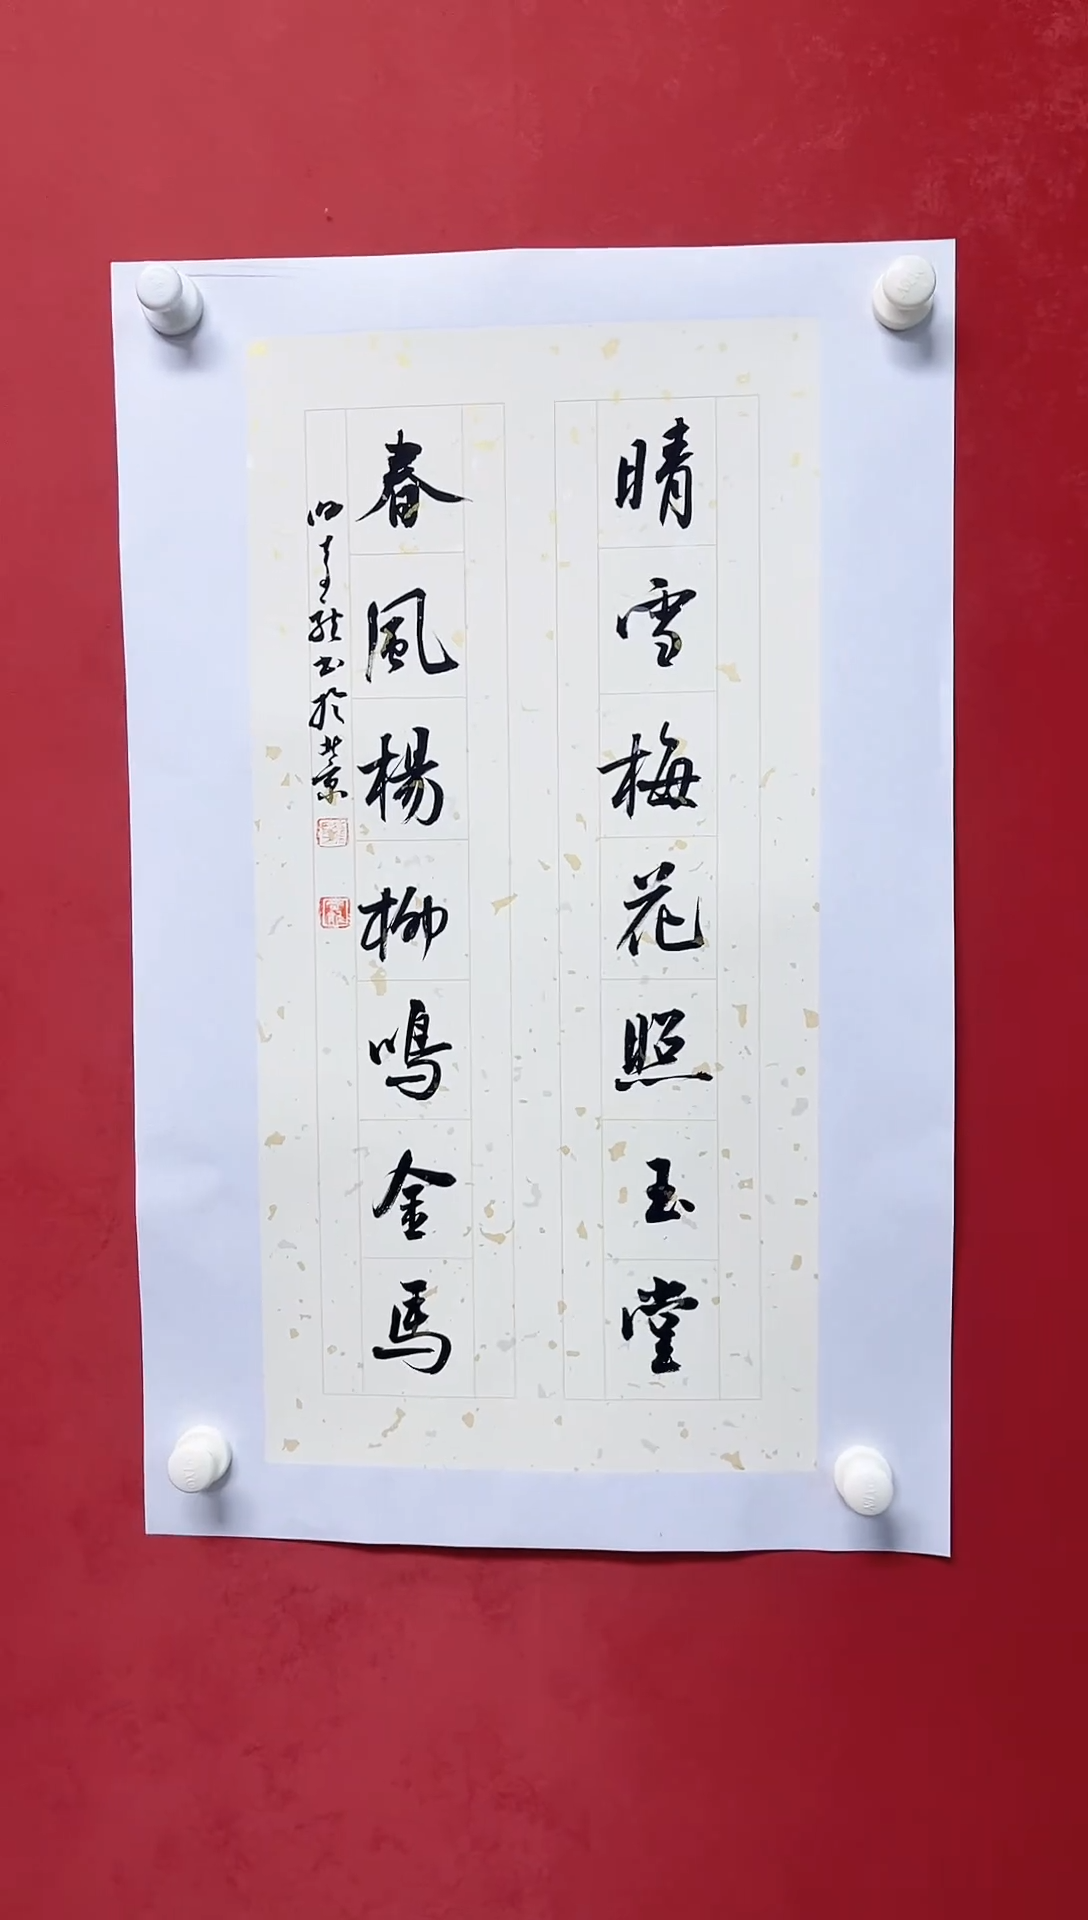 晴雪梅花照玉堂
春風楊柳鳴金馬
書於北京